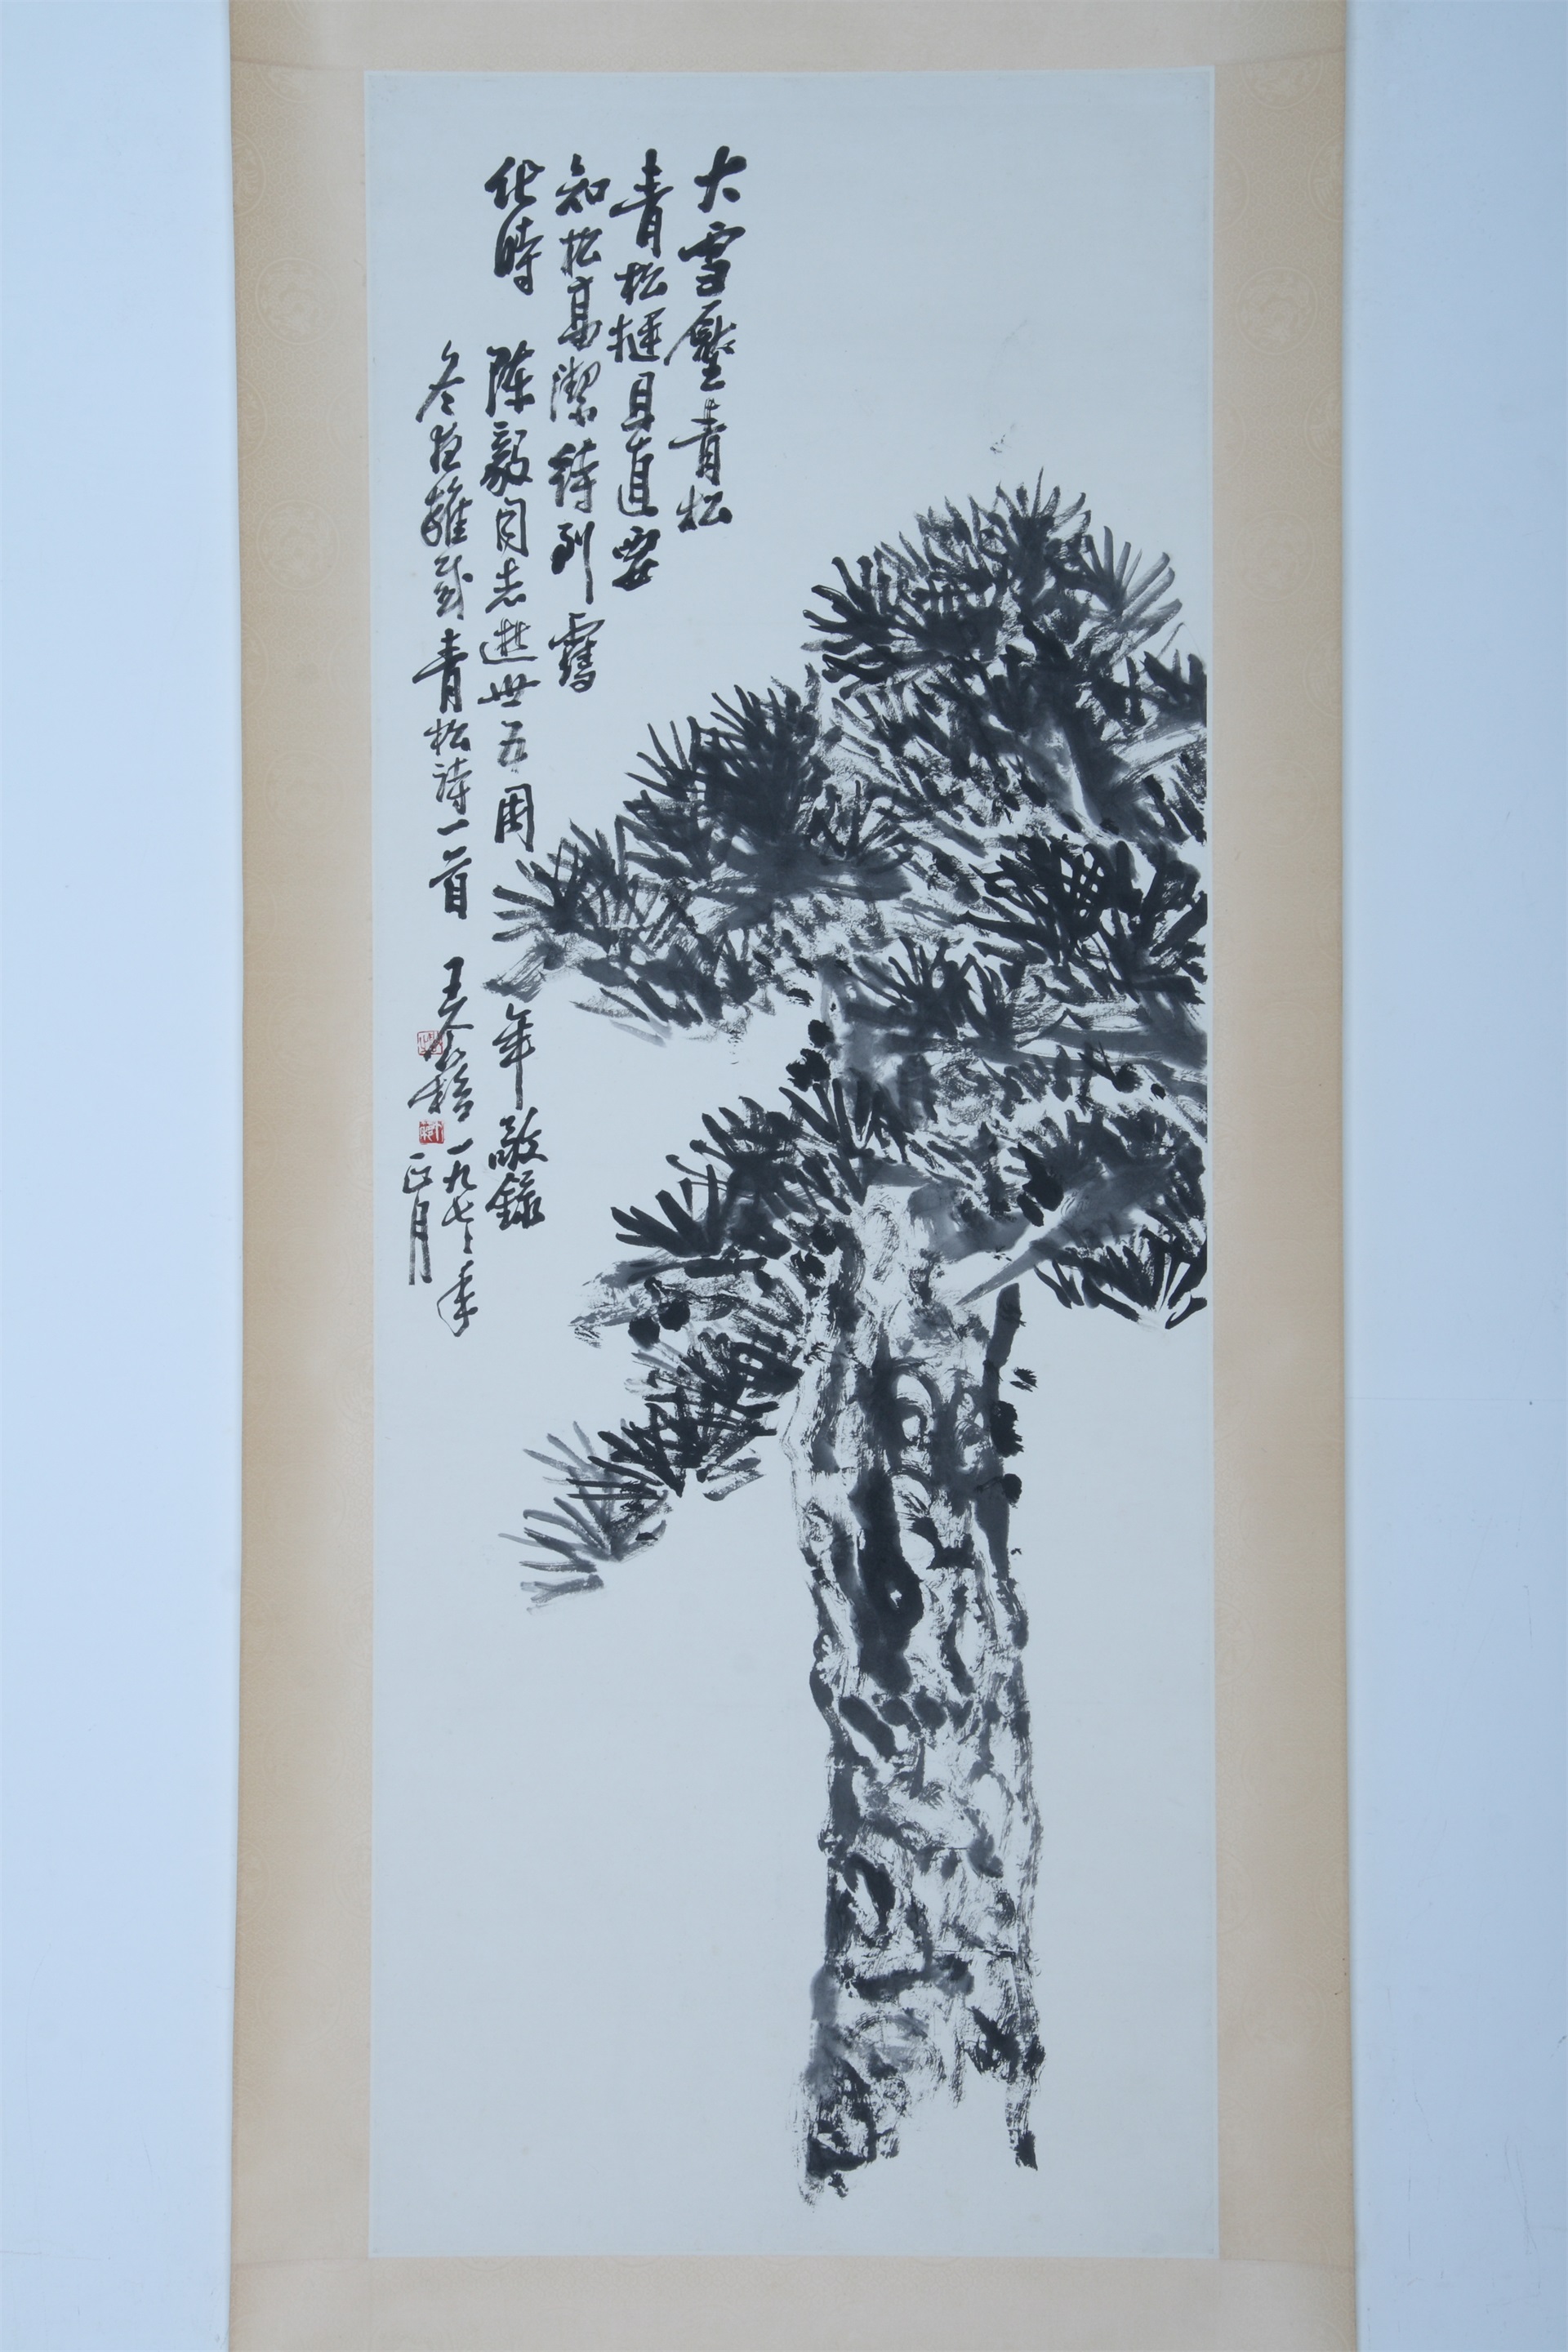 大雪壓青松
青松挺且直要
知松高潔待到雪
化時
陈毅同志逝世五周年敬錄
冬夜雜咏青松詩一首
王个簃一九七七年
正月